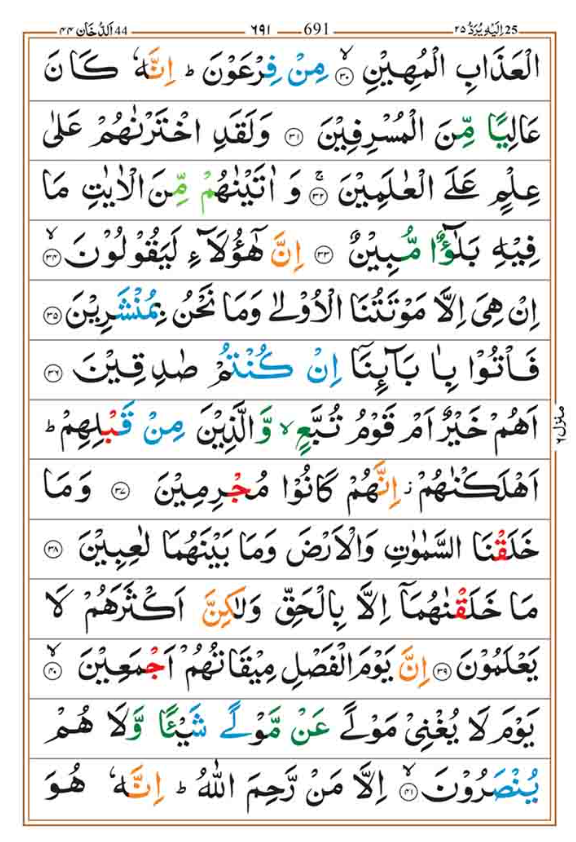 44 اَلدُّخَان ٤٤ ٦٩١ 691 اِلَيْهِ يُرَدُّ ٢٥ 25
الْعَذَابِ الْمُهِيْنِ ۙ‏﴿۳۰﴾ مِنْ فِرْعَوْنَ ؕ اِنَّهٗ كَانَ
عَالِيًا مِّنَ الْمُسْرِفِيْنَ ﴿۳۱﴾ وَلَقَدِ اخْتَرْنٰهُمْ عَلٰى
عِلْمٍ عَلَى الْعٰلَمِيْنَ ۚ‏﴿۳۲﴾ وَ اٰتَيْنٰهُمْ مِّنَ الْاٰيٰتِ مَا
فِيْهِ بَلٰٓؤٌا مُّبِيْنٌ ﴿۳۳﴾ اِنَّ هٰٓؤُلَآءِ لَيَقُوْلُوْنَ ۙ‏﴿۳۴﴾
اِنْ هِىَ اِلَّا مَوْتَتُنَا الْاُوْلٰى وَمَا نَحْنُ بِمُنْشَرِيْنَ ﴿۳۵﴾
فَاْتُوْا بِاٰبَآئِنَاۤ اِنْ كُنْتُمْ صٰدِقِيْنَ ﴿۳۶﴾
اَهُمْ خَيْرٌ اَمْ قَوْمُ تُبَّعٍ ۙ وَّالَّذِيْنَ مِنْ قَبْلِهِمْ ؕ
اَهْلَكْنٰهُمْ ز اِنَّهُمْ كَانُوْا مُجْرِمِيْنَ ﴿۳۷﴾ وَمَا
خَلَقْنَا السَّمٰوٰتِ وَالْاَرْضَ وَمَا بَيْنَهُمَا لٰعِبِيْنَ ﴿۳۸﴾
مَا خَلَقْنٰهُمَاۤ اِلَّا بِالْحَقِّ وَلٰكِنَّ اَكْثَرَهُمْ لَا
يَعْلَمُوْنَ ﴿۳۹﴾ اِنَّ يَوْمَ الْفَصْلِ مِيْقَاتُهُمْ اَجْمَعِيْنَ ۙ‏﴿۴۰﴾
يَوْمَ لَا يُغْنِىْ مَوْلًى عَنْ مَّوْلًى شَيْئًا وَّلَا هُمْ
يُنْصَرُوْنَ ۙ‏﴿۴۱﴾ اِلَّا مَنْ رَّحِمَ اللّٰهُ ؕ اِنَّهٗ هُوَ
منزل ٦